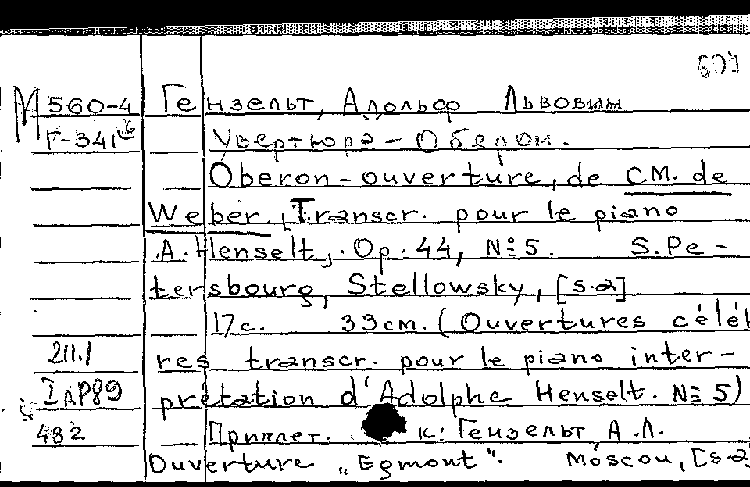 М 560-4 Гензельт, Адольф Львович
Г-341 Увертюра-Оберон.
Oberon-ouverture, de C.M. de
Weber. [Transcr. pour le piano
A. Henselt]. Op. 44, № 5. S.Pe-
tersbourg, Stellowsky, [s.a]
17c. 33cm. (Ouvertures célèb
211.1 res transcr. pour le piano inter-
prétation d'Adolphe Henselt. № 5)
482 Приплет. к: Гензельт, А.Л.
Ouverture „Egmont". Moscou, [s.a